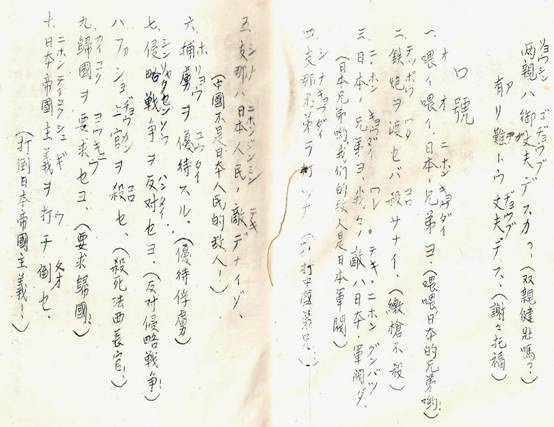 両親ハ御丈夫デスカ?、(双親健壯嗎?)
有リ難トウ丈夫デス、(謝々托福)
口號
一、喂イ喂イ日本ノ兄弟ヨ、(喂喂日本的兄弟喲!)
二、鉄炮ヲ渡セバ殺サナイ、(繳槍不殺)
三、日本ノ兄弟ヨ我々ノ敵ハ日本ノ軍閥ダ、
(日本兄弟喲我们的敌人是日本軍閥)
四、支那兄弟ヲ打ツナ
五、支那ハ日本人民ノ敵デナイゾ、
(中國不是日本人民的敌人!)
六、捕虜ヲ優待スル、(優待俘虜)
七、侵略戦争ヲ反対セヨ、(反对侵略戦争!)
八、ファショ上官ヲ殺セ、(殺死法西長官、)
九、歸國ヲ要求セヨ、(要求歸國、)
十、日本帝國主義ヲ打チ倒セ、
(打倒日本帝國主義!)